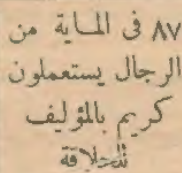 ٨٧ فى الماية من
الرجال يستعملون
كريم بالمؤليف
للحلاقة